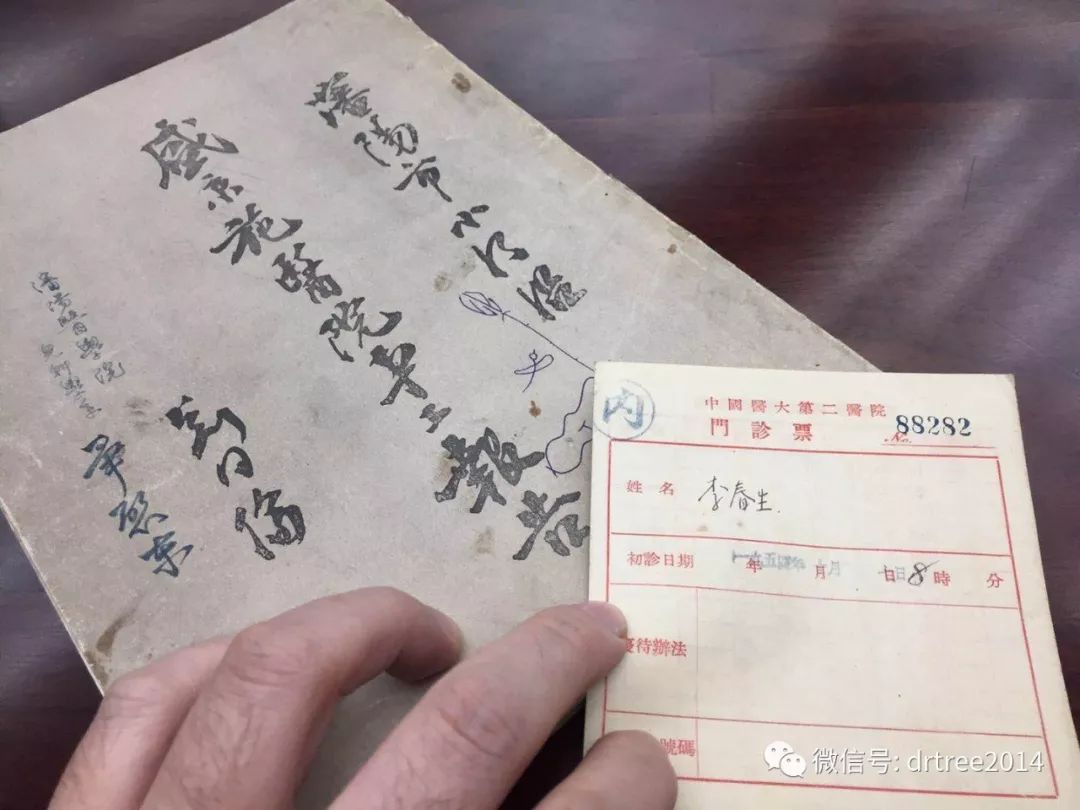 瀋陽市小河沿
盛京施醫院 報告
劉同倫
瀋陽醫學院
兒科學系
內
中國醫大第二醫院
門診票 No. 88282
姓名 李春生
初診日期 年 月 日 8 時 分
優待辦法
號碼
微信号: drtree2014